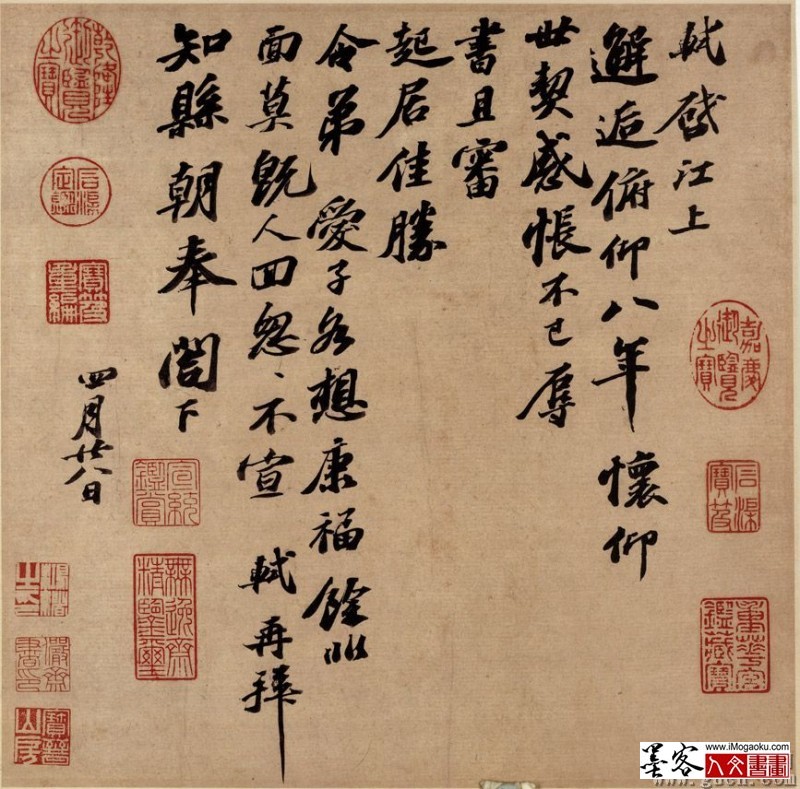 軾啓江上
邂逅俯仰八年懷仰
世契感悵不已辱
書且審
起居佳勝
令弟愛子各想康福餘非
面莫既人回怱〻不宣軾再拜
知縣朝奉閤下
四月廿八日
嘉慶御覽之寶
石渠寶笈
重華宮鑑藏寶
乾隆御覽之寶
石渠定鑑
寶笈重編
宣統鑑賞
無逸齋精鑒璽
墨客
www.iMogaoku.com
人文書畫